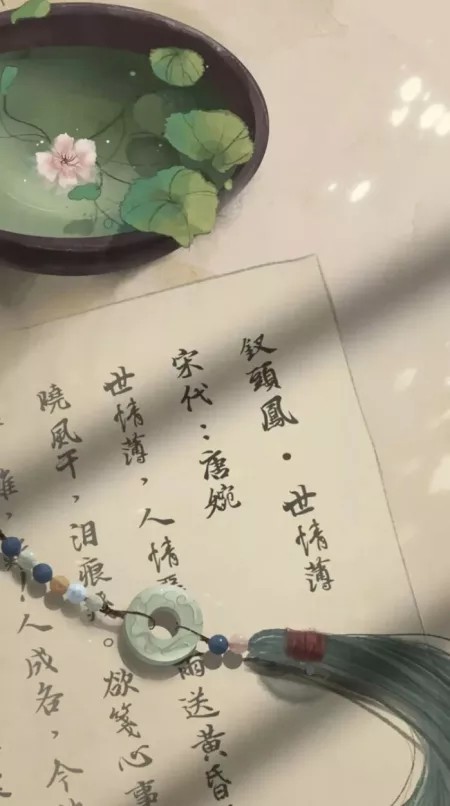 釵頭鳳·世情薄
宋代：唐婉
世情薄，人情 雨送黃昏
曉風干，泪痕 。欲箋心事
難， ！人成各，今